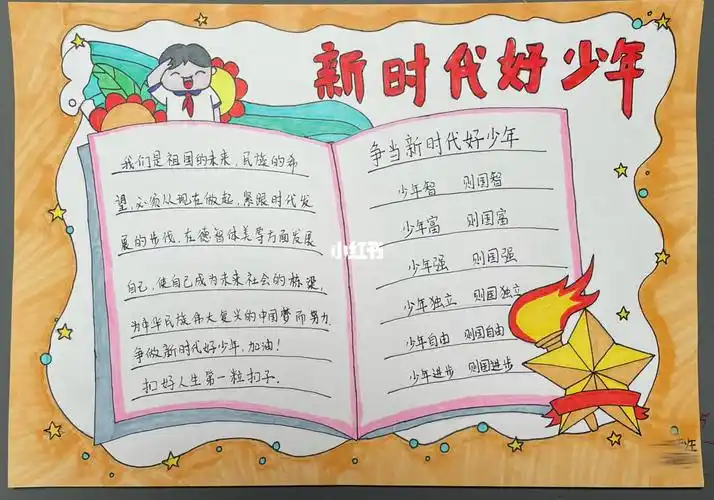 新时代好少年
我们是祖国的未来、民族的希
望,必须从现在做起,紧跟时代发
展的步伐,在德智体美等方面发展
自己,使自己成为未来社会的栋梁,
为中华民族伟大复兴的中国梦而努力.
争做新时代好少年,加油!
扣好人生第一粒扣子.
争当新时代好少年
少年智 则国智
少年富 则国富
少年强 则国强
少年独立 则国独立
少年自由 则国自由
少年进步 则国进步
小红书